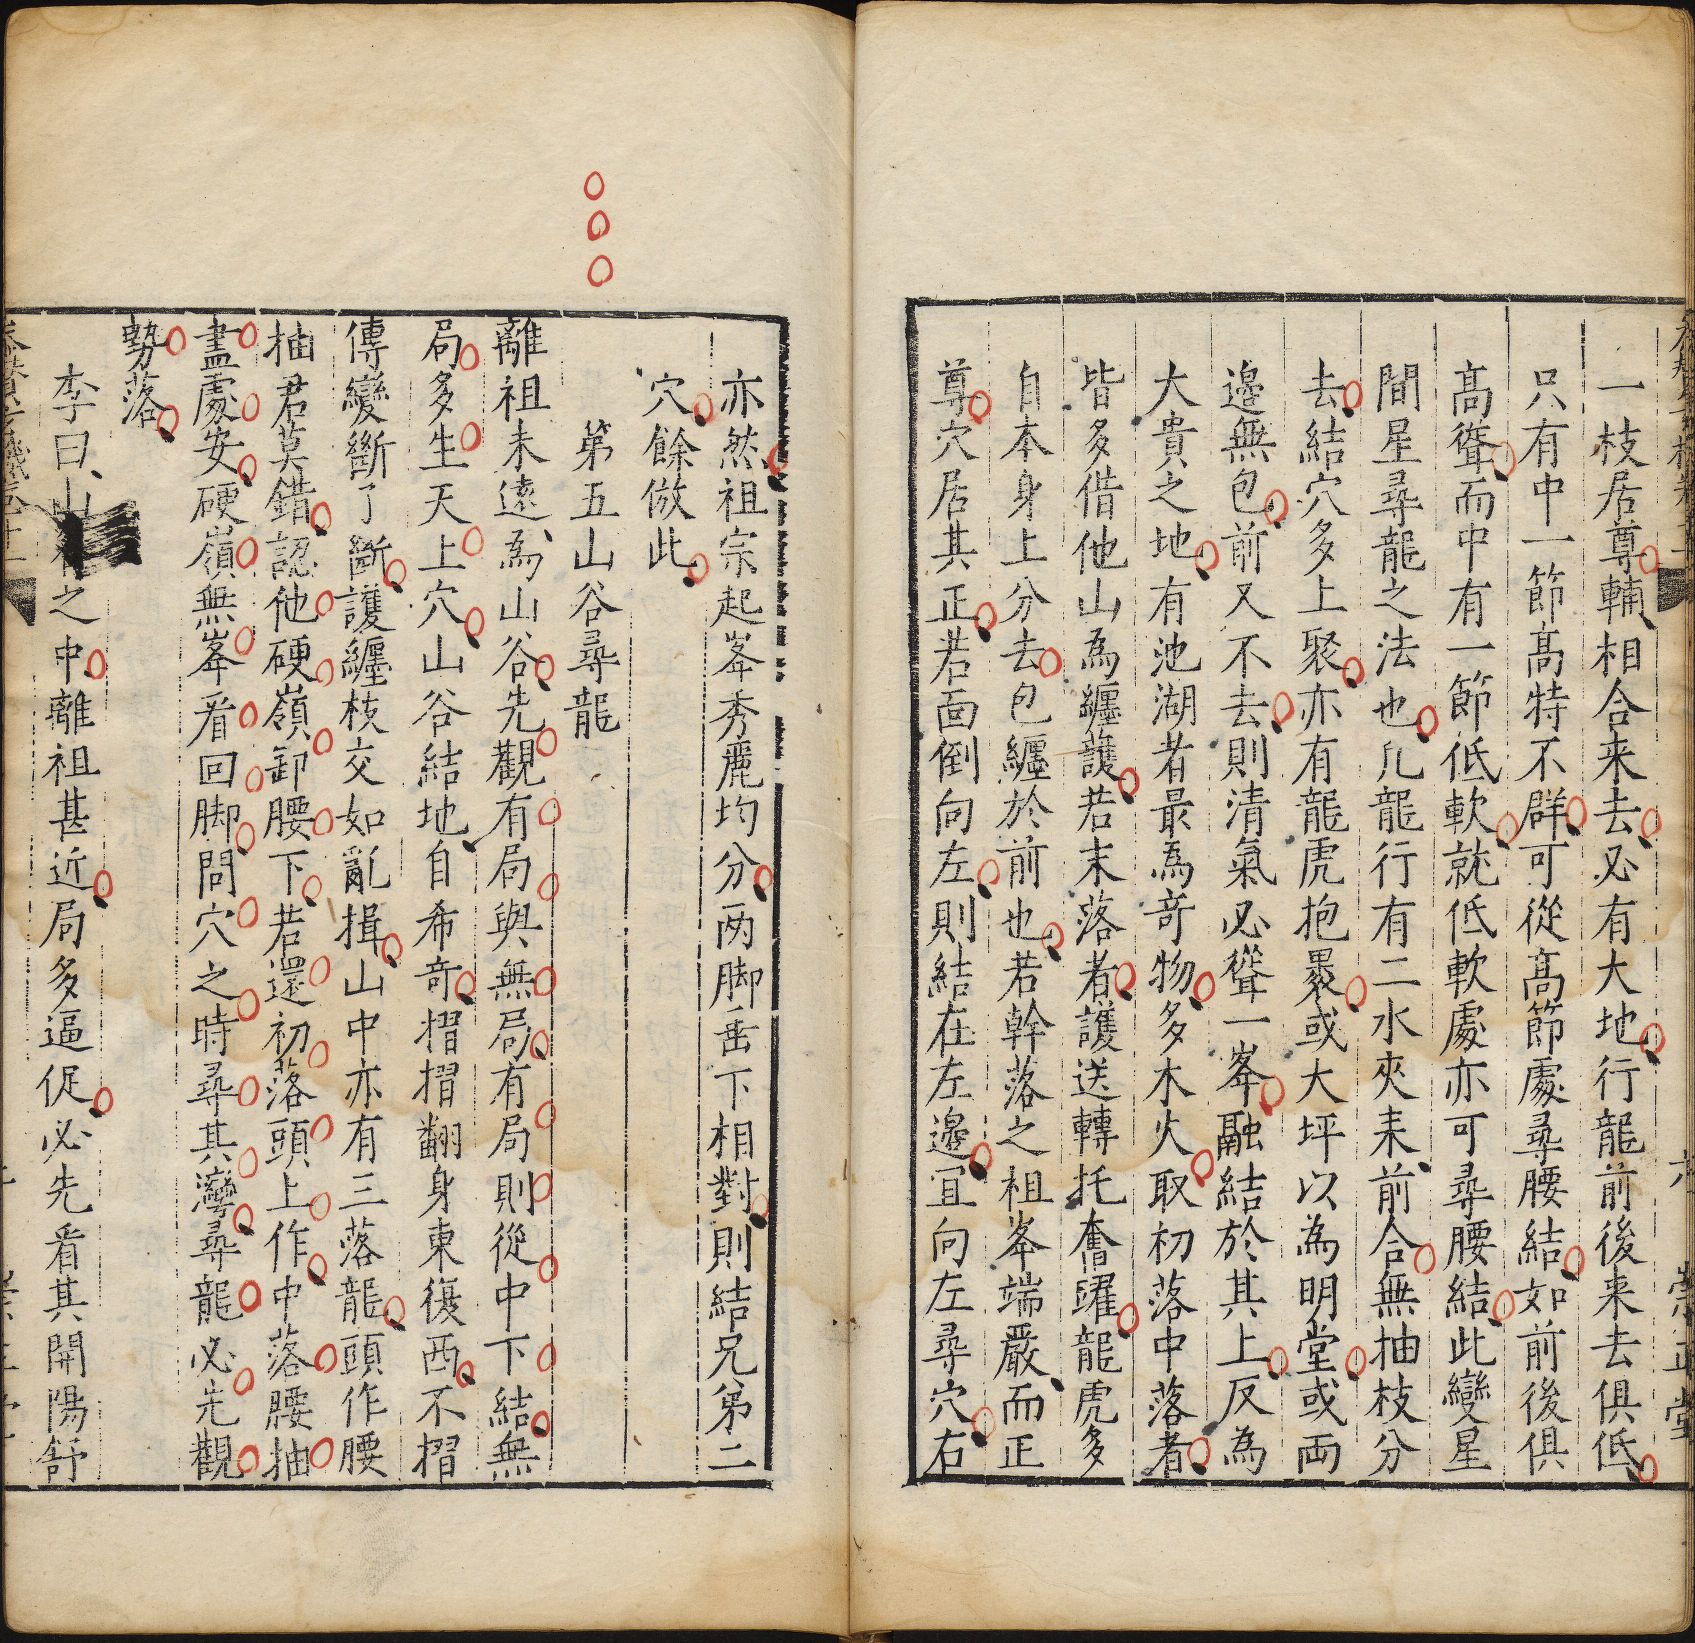 一枝居尊輔相合来去必有大地行龍前後来去俱低
只有中一節高特不群可從高節處尋腰結如前後俱
高聳而中有一節低軟就低軟處亦可尋腰結此變星
間星尋龍之法也凡龍行有二水夾来前合無抽枝分
去結穴多上聚亦有龍虎抱裹或大坪以為明堂或両
邊無包前又不去則清氣必聳一峯融結於其上反為
大貴之地有池湖者最為竒物多木火取初落中落者
皆多借他山為纏護若末落者護送轉托奮躍龍虎多
自本身上分去包纏於前也若幹落之祖峯端嚴而正
尊穴居其正若面倒向左則結在左邊宜向左尋穴右
亦然祖宗起峯秀麗均分両脚垂下相對則結兄弟二
穴餘倣此
第五山谷尋龍
離祖未遠為山谷先觀有局與無局有局則從中下結無
局多生天上穴山谷結地自希竒摺摺翻身東復西不摺
傳變斷了斷護纏枝交如亂揖山中亦有三落龍頭作腰
抽君莫錯認他硬嶺卸腰下若還初落頭上作中落腰抽
盡處安硬嶺無峯看回脚問穴之時尋其灣尋龍必先觀
勢落
李曰山之中離祖甚近局多逼促必先看其開陽舒